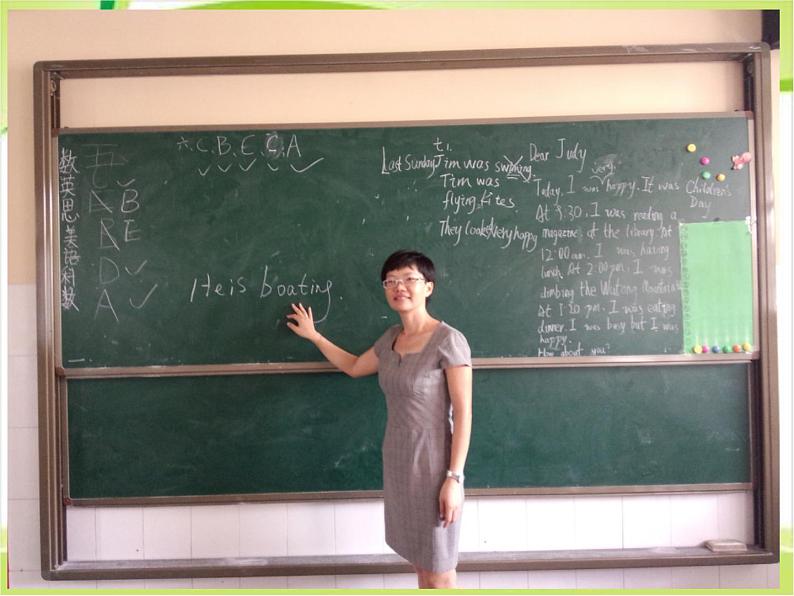 数英思美语科数
五
C
A B
B E
D
A
六. C. B. E. C. A
t.
Last Sunday Jim was swimming.
Tim was
flying kites
They looked very happy
He is boating.
Dear Judy
very
Today, I was happy. It was Children's
Day
At 9:30, I was reading a
magazine at the library. At
12:00 am. I was having
lunch. At 2:00 pm. I was
climbing the Wutong Mountain
At 1:20 pm. I was eating
dinner. I was busy but I was
happy.
How about you?